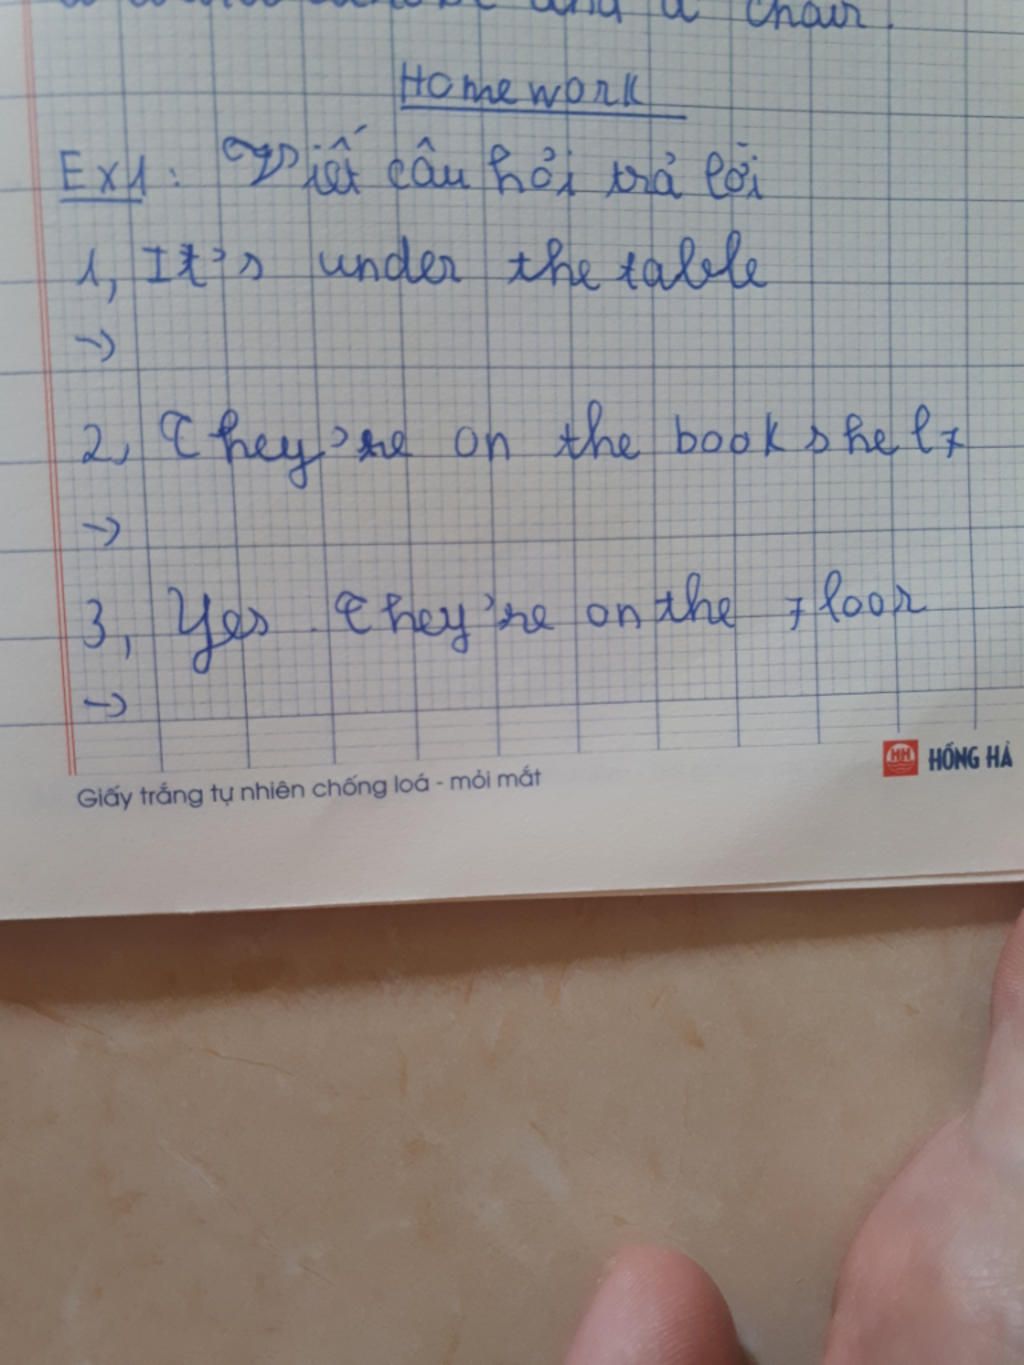 and a chair.
Homework
Ex1: Viết câu hỏi trả lời
1, It's under the table
→
2, They're on the bookshelf
→
3, Yes. They're on the floor
→
HH HỒNG HÀ
Giấy trắng tự nhiên chống loá - mỏi mắt